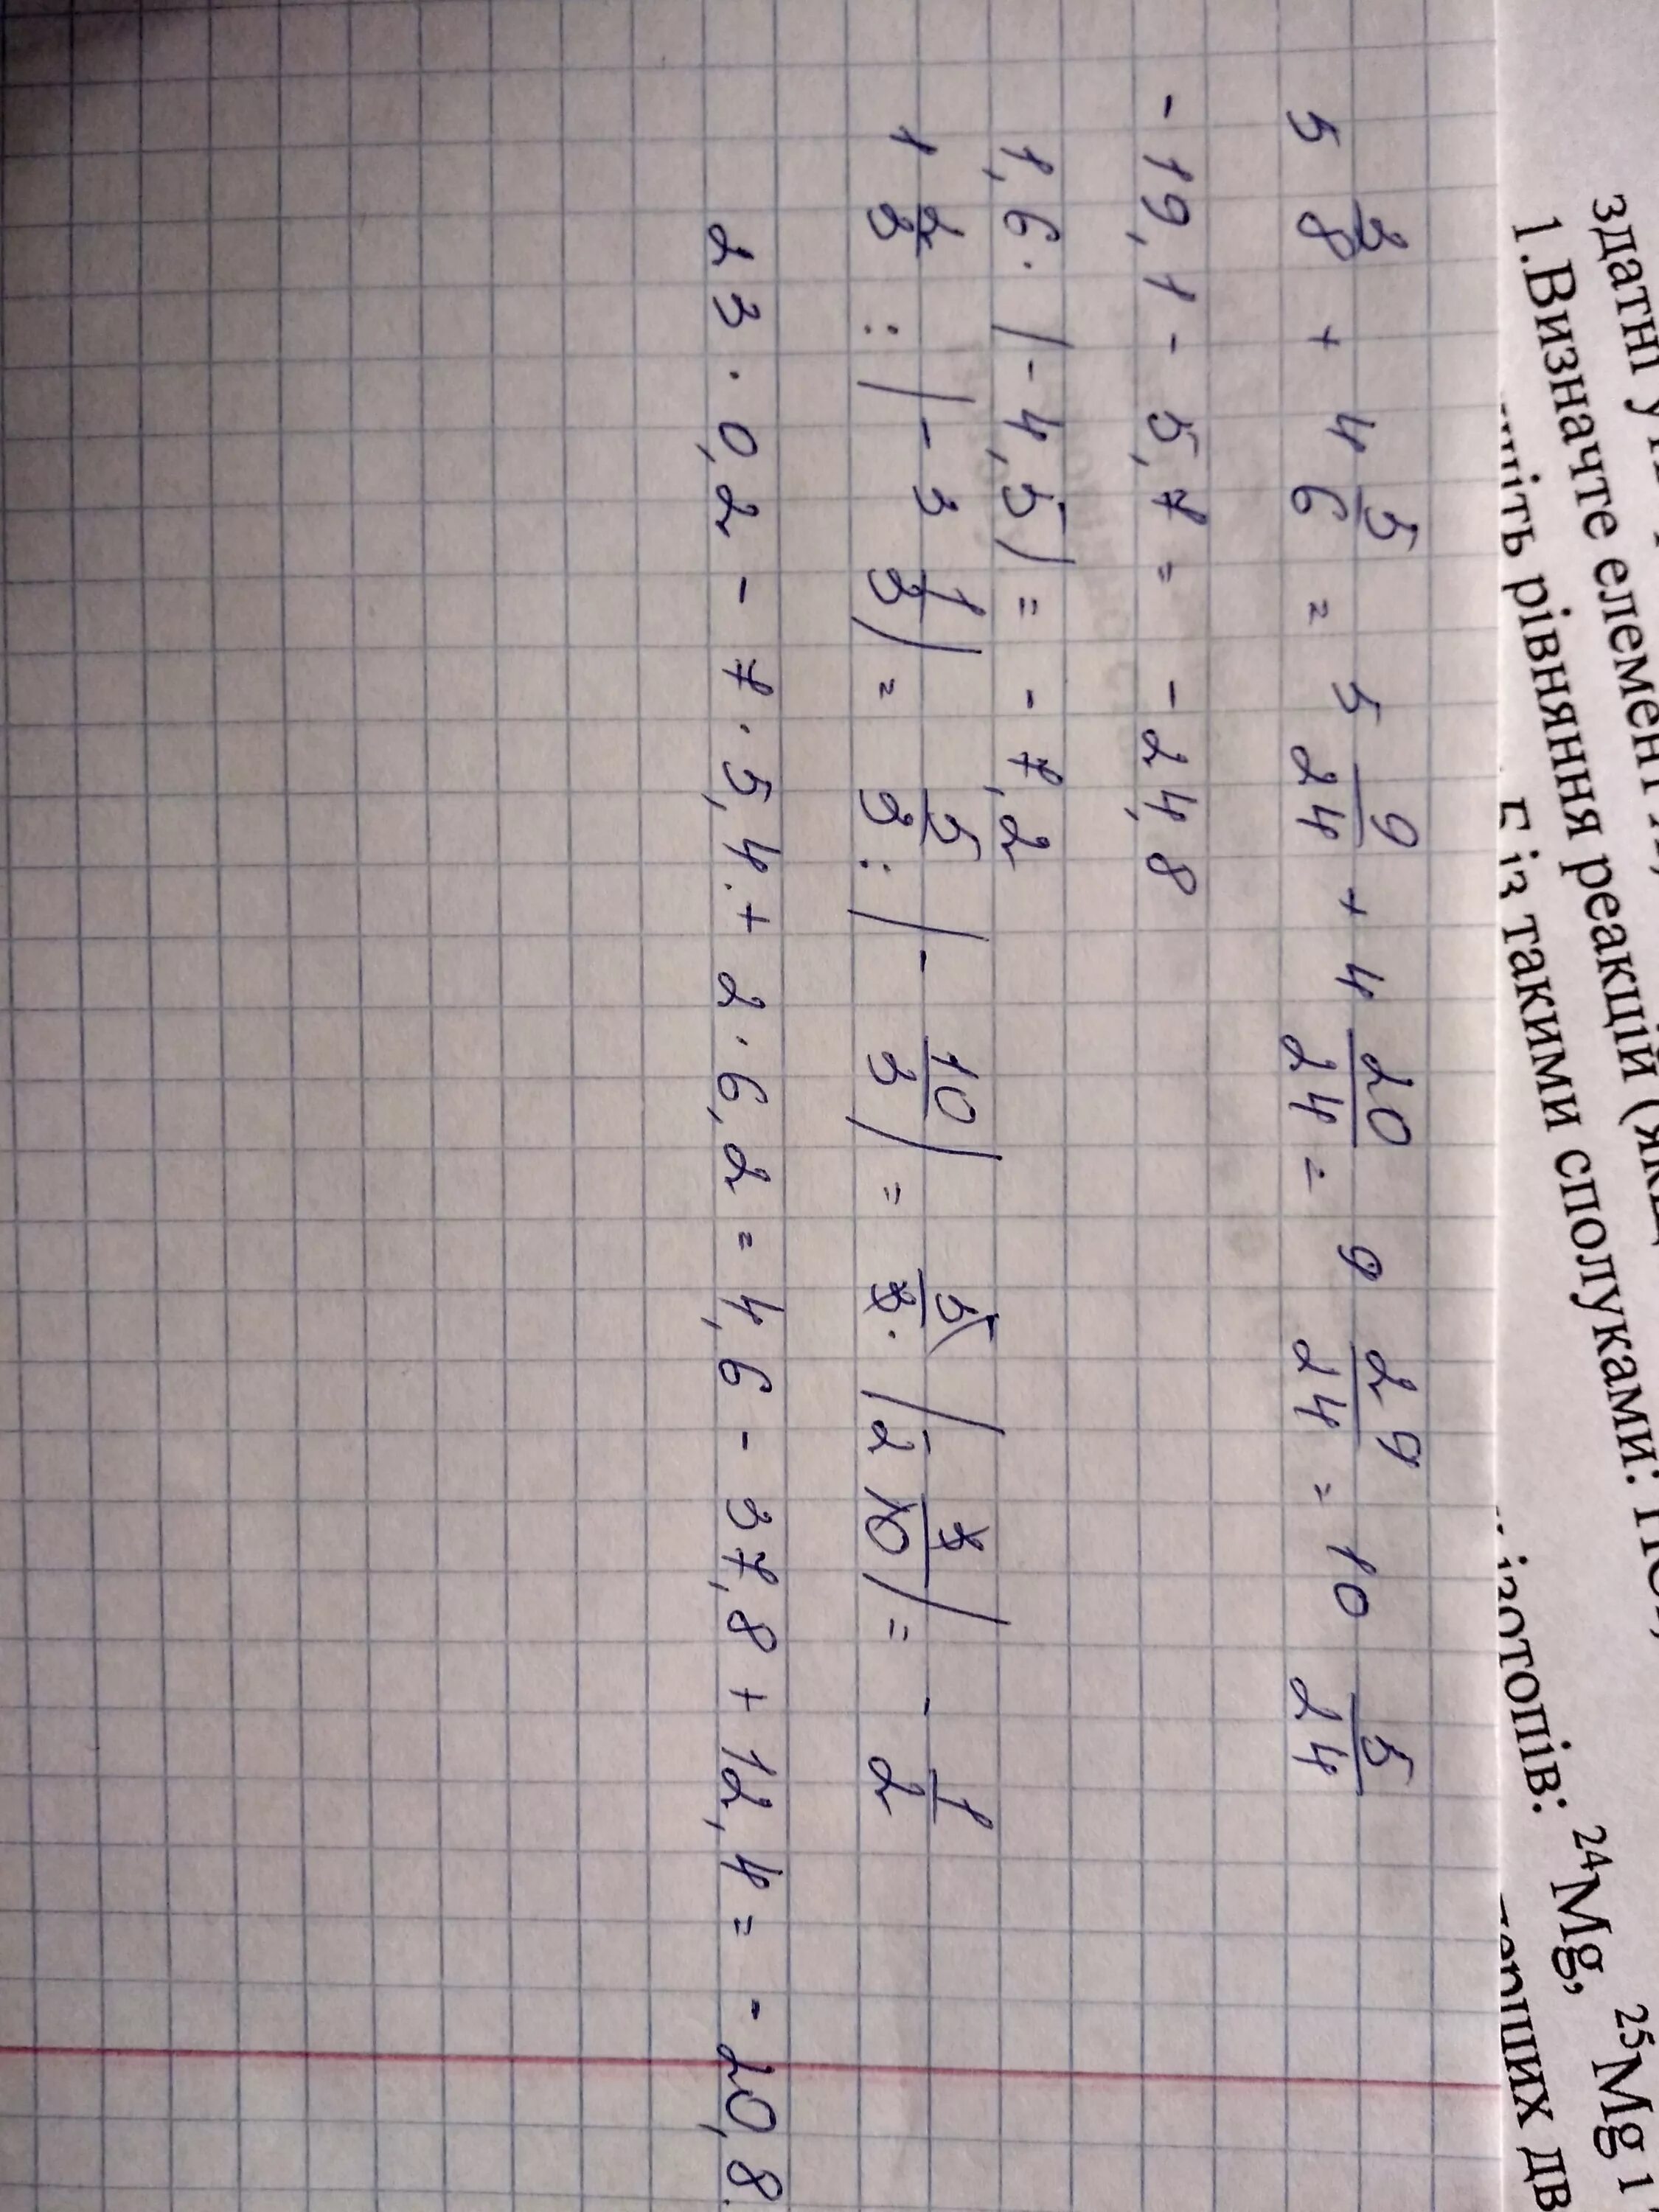 здатні у
1.Визначте елемент
шіть рівняння реакцій (якщ
Е із такими сполуками:
ізотопів: ²⁴Mg, ²⁵Mg і
перших дв
5 3/8 + 4 5/6 = 5 9/24 + 4 20/24 = 9 29/24 = 10 5/24
- 19,1 - 5,7 = - 24,8
1,6 · (- 4,5) = - 7,2
1 2/3 : (- 3 1/3) = 5/3 : (- 10/3) = 5/3 · (- 3/10) = - 1/2
23 · 0,2 - 7 · 5,4 + 2 · 6,2 = 4,6 - 37,8 + 12,4 = - 20,8.